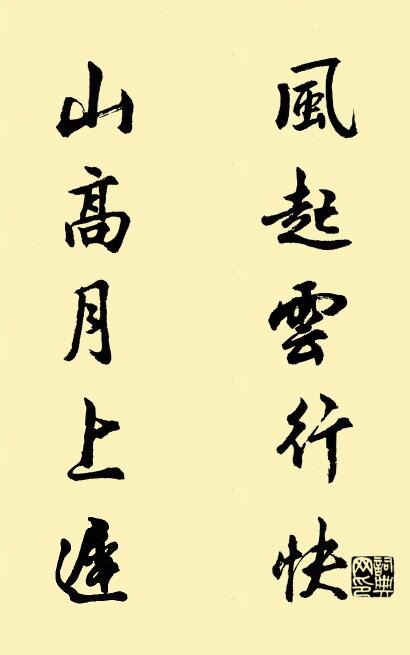 風起雲行快
山高月上遲
詞典網印